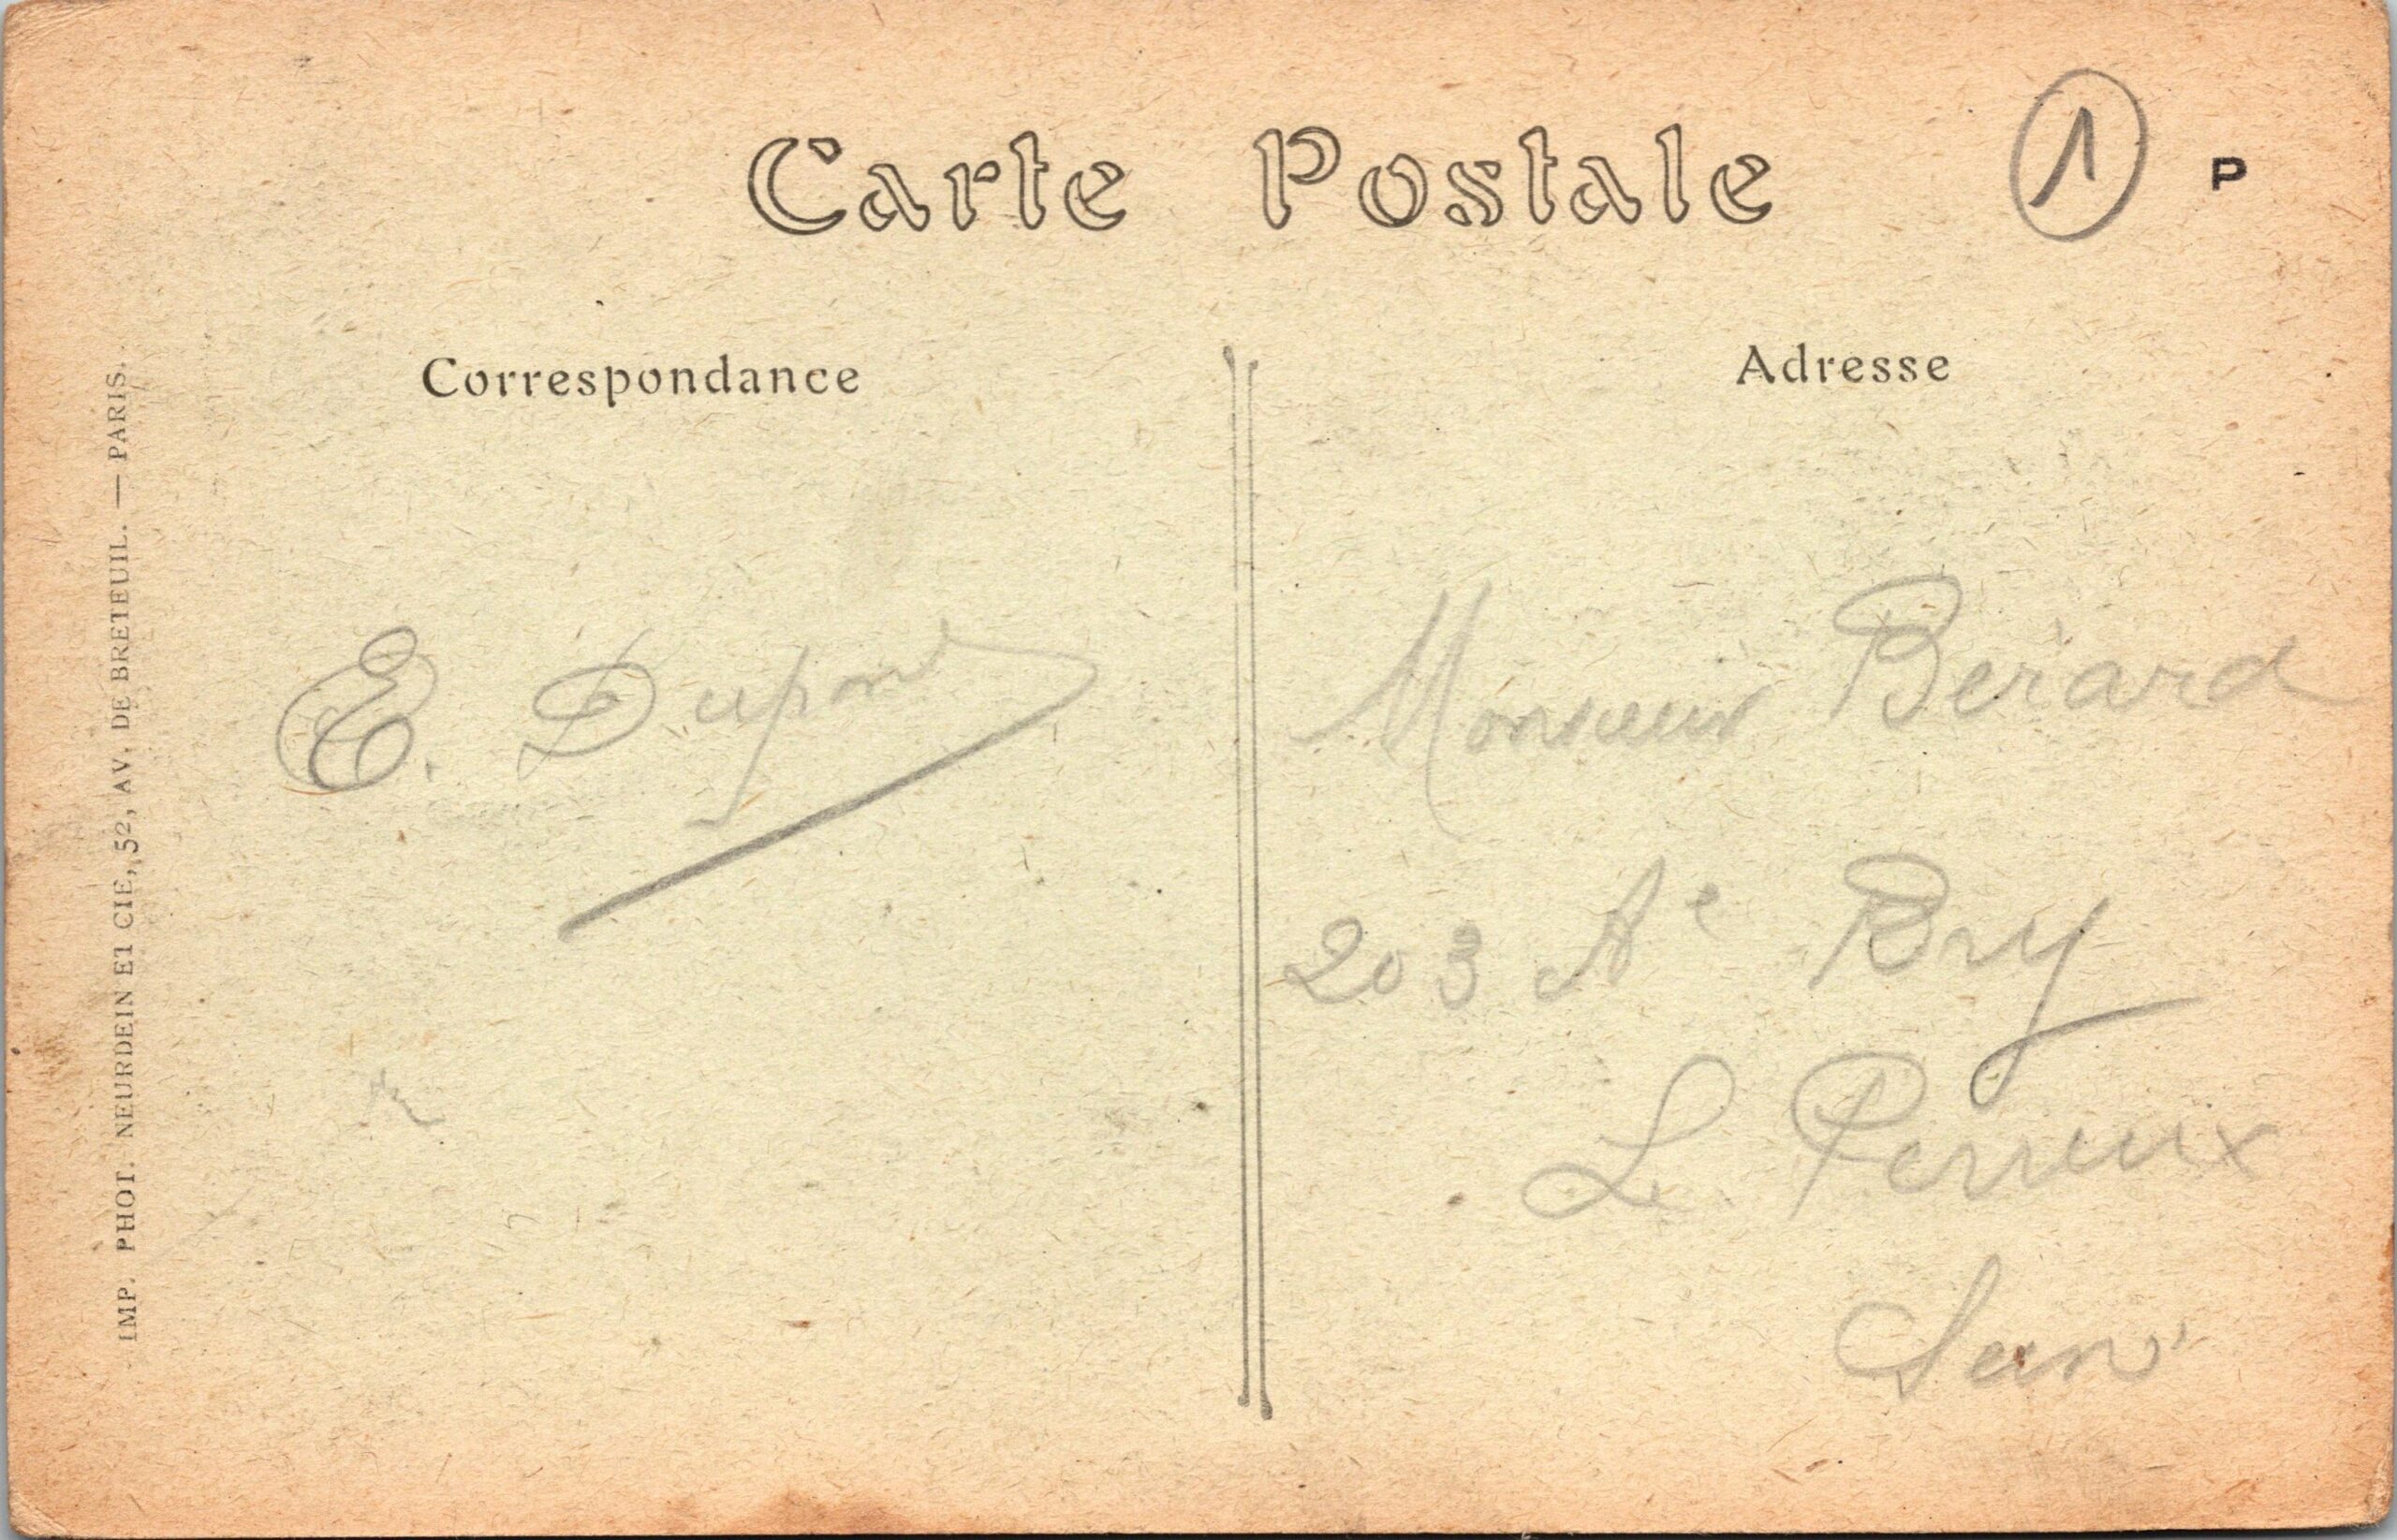 Carte Postale
1
P
Correspondance
Adresse
E. Dupont
Monsieur Berard
203 Ae Bry
Le Perreux
Seine
IMP. PHOT. NEURDEIN ET CIE, 52, AV. DE BRETEUIL. — PARIS.